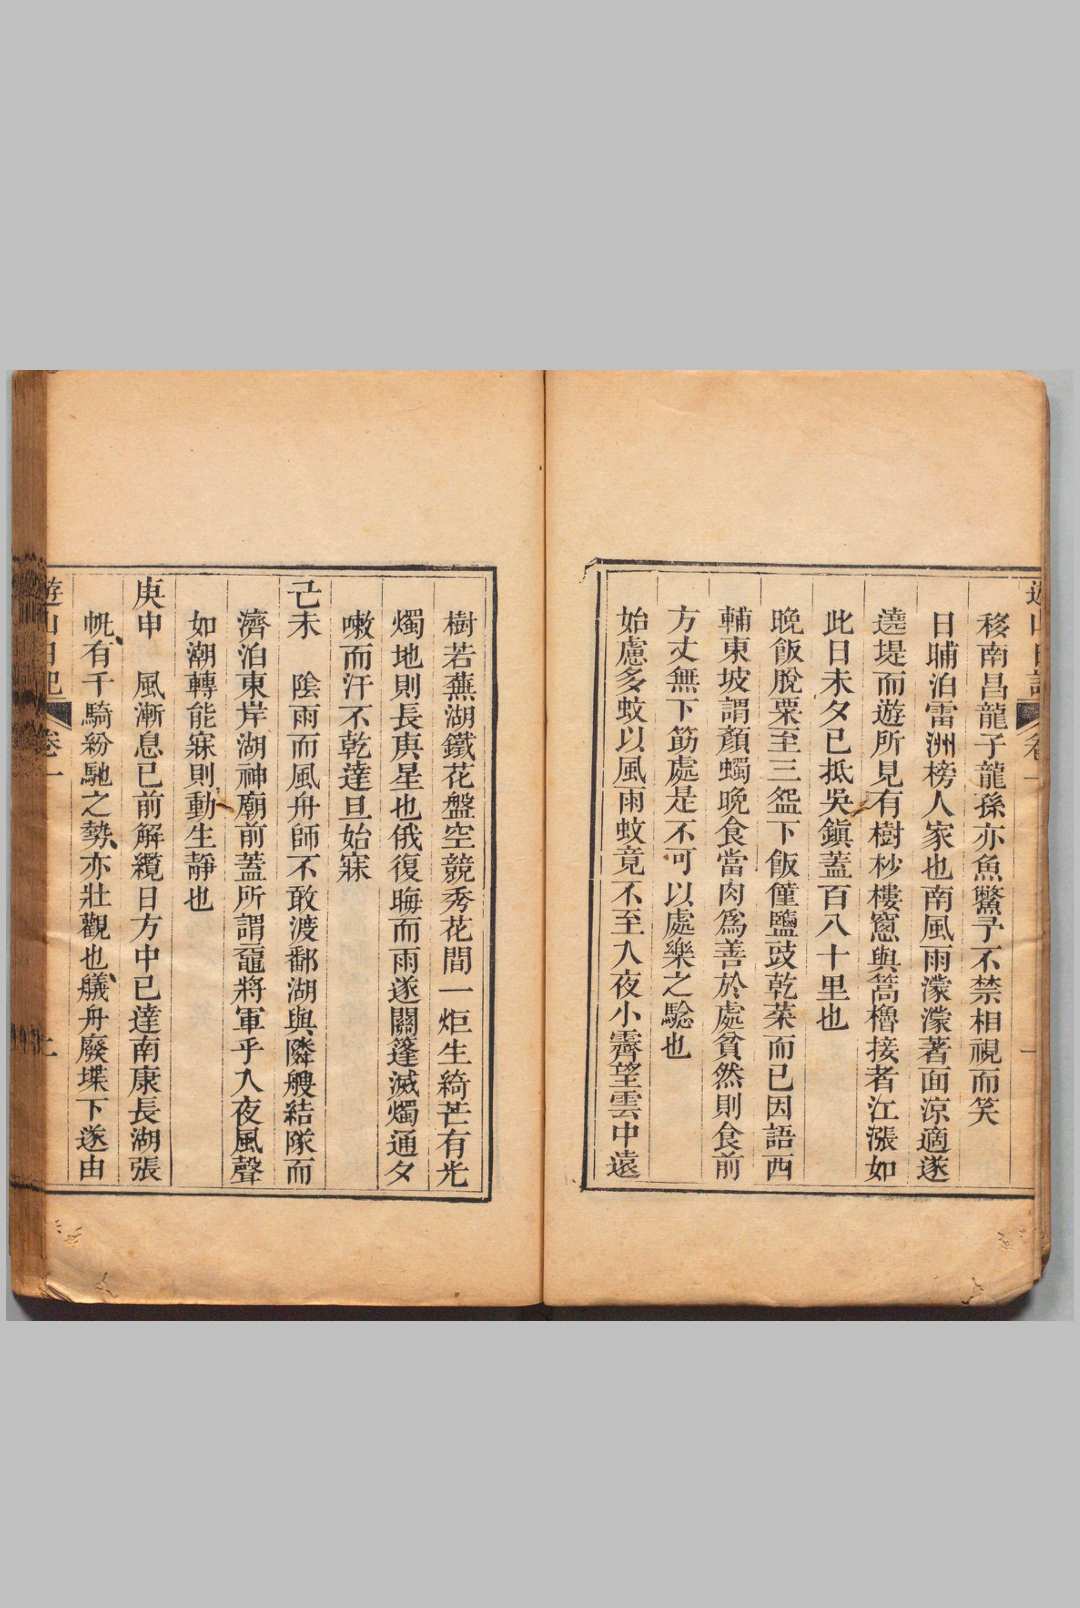 移南昌龍子龍孫亦魚鱉予不禁相視而笑
日晡泊雷洲榜人家也南風雨濛濛著面涼適遂
遶堤而遊所見有樹杪樓窻與篙櫓接者江漲如
此日未夕已抵吳鎭蓋百八十里也
晚飯脫粟至三盌下飯僅鹽豉乾菜而已因語西
輔東坡謂顏蠋晚食當肉爲善於處貧然則食前
方丈無下筯處是不可以處樂之驗也
始慮多蚊以風雨蚊竟不至入夜小霽望雲中遠
樹若蕪湖鐵花盤空競秀花間一炬生綺芒有光
燭地則長庚星也俄復晦而雨遂關篷滅燭通夕
嗽而汗不乾達旦始寐
己未　陰雨而風舟師不敢渡鄱湖與隣艘結隊而
濟泊東岸湖神廟前蓋所謂黿將軍乎入夜風聲
如潮轉能寐則動生靜也
庚申　風漸息已前解纜日方中已達南康長湖張
帆有千騎紛馳之勢亦壯觀也艤舟廢堞下遂由
遊山日記 卷一